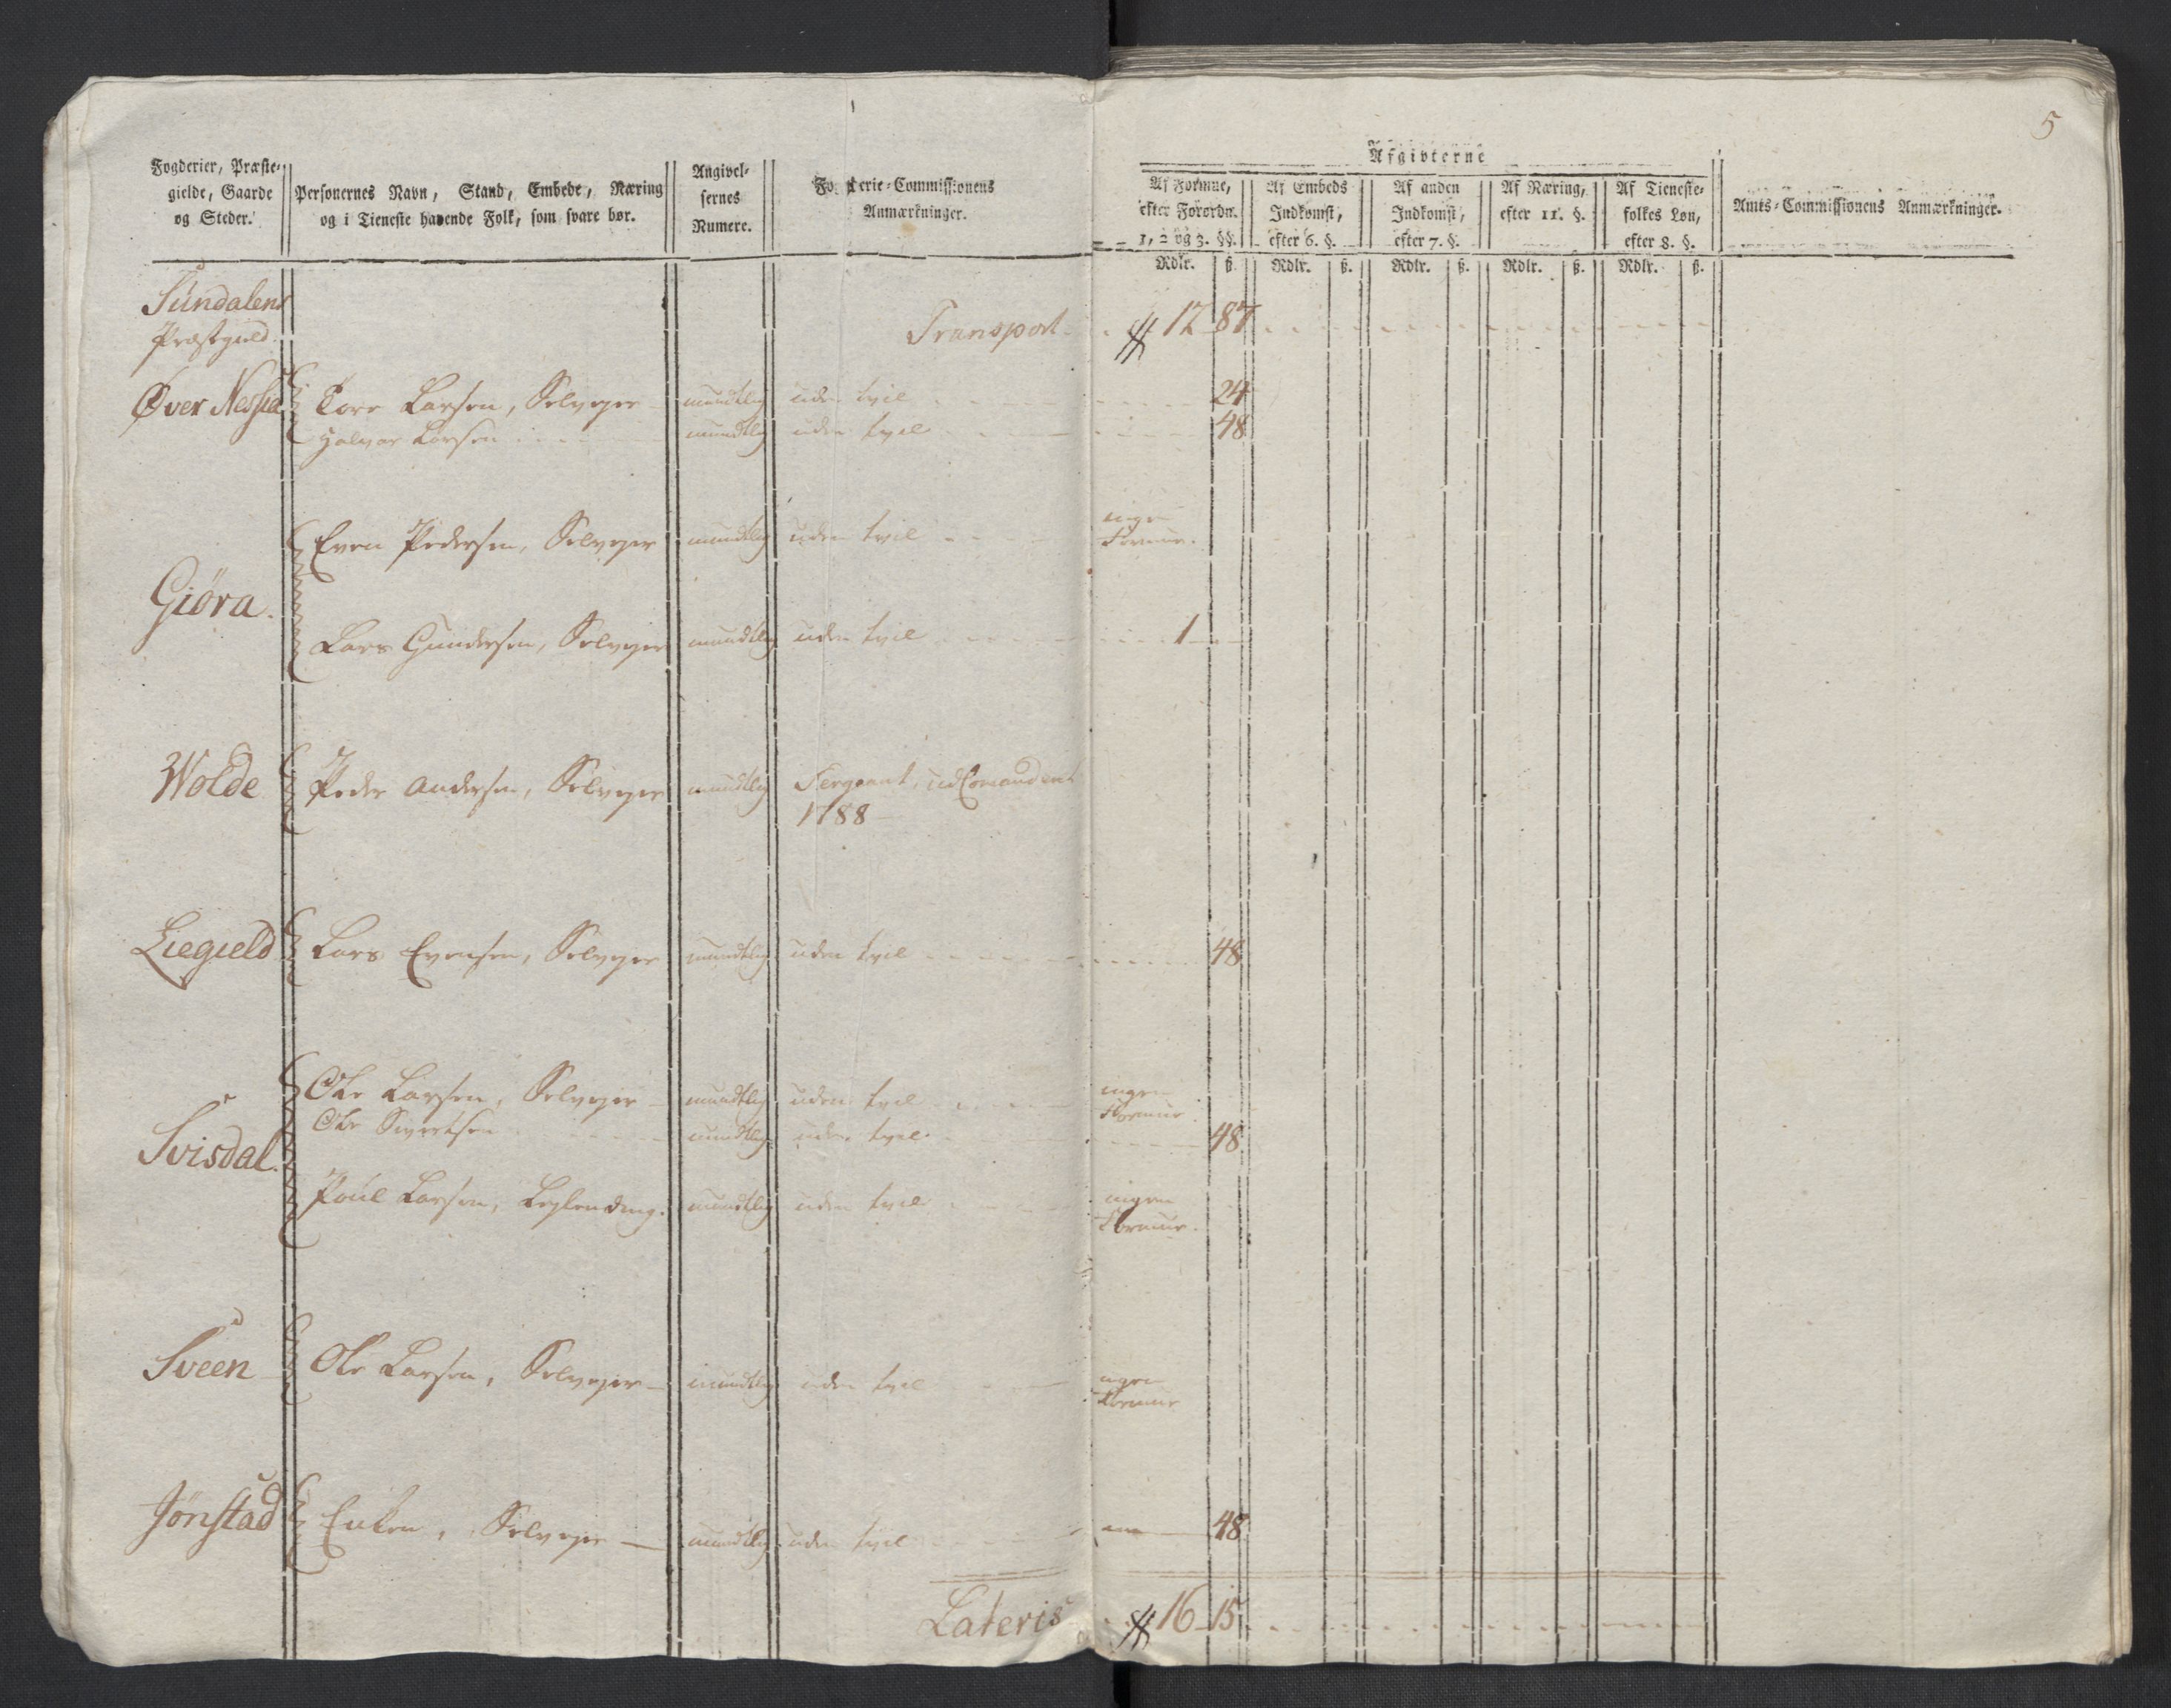 5
Afgivterne
Fogderier, Præste-
gielde, Gaarde
og Steder.
Personernes Navn, Stand, Embede, Næring
og i Tieneste havende Folk, som svare bør.
Angivel-
sernes
Numere.
Fo terie-Commissionens
Anmærkninger.
Af Formue,
efter Forordn.
1, 2 og 3. §§.
Af Embeds
Indkomst,
efter 6. §.
Af anden
Indkomst,
efter 7. §.
Af Næring,
efter 11. §.
Af Tieneste-
folkes Løn,
efter 8. §.
Amts-Commissionens Anmærkninger.
Rdlr. ß. Rdlr. ß. Rdlr. ß. Rdlr. ß. Rdlr. ß.
Sundalens
Præstgield
Transport 12 87
Øver Tore Larsen, Selvejer mundtlig uden tvil 24
Halvor Larsen mundtlig uden tvil 48
Giøra.
Even Pedersen, Selvejer mundtlig uden tvil ingen
Formue.
Lars Gundersen, Selvejer mundtlig uden tvil 1
Wolde Peder Andersen, Selvejer mundtlig Sergeant, udComanderet
1788
Liegield Lars Evensen, Selvejer mundtlig uden tvil 48
Svisdal.
Ole Larsen, Selvejer mundtlig uden tvil ingen
Formue
Ole Sivertsen mundtlig uden tvil 48
Poul Larsen, Leylending. mundtlig uden tvil ingen
Formue.
Sveen Ole Larsen, Selvejer mundtlig uden tvil ingen
Formue
Jønstad Enken, Selvejer mundtlig uden tvil 48
Lateris 16 15